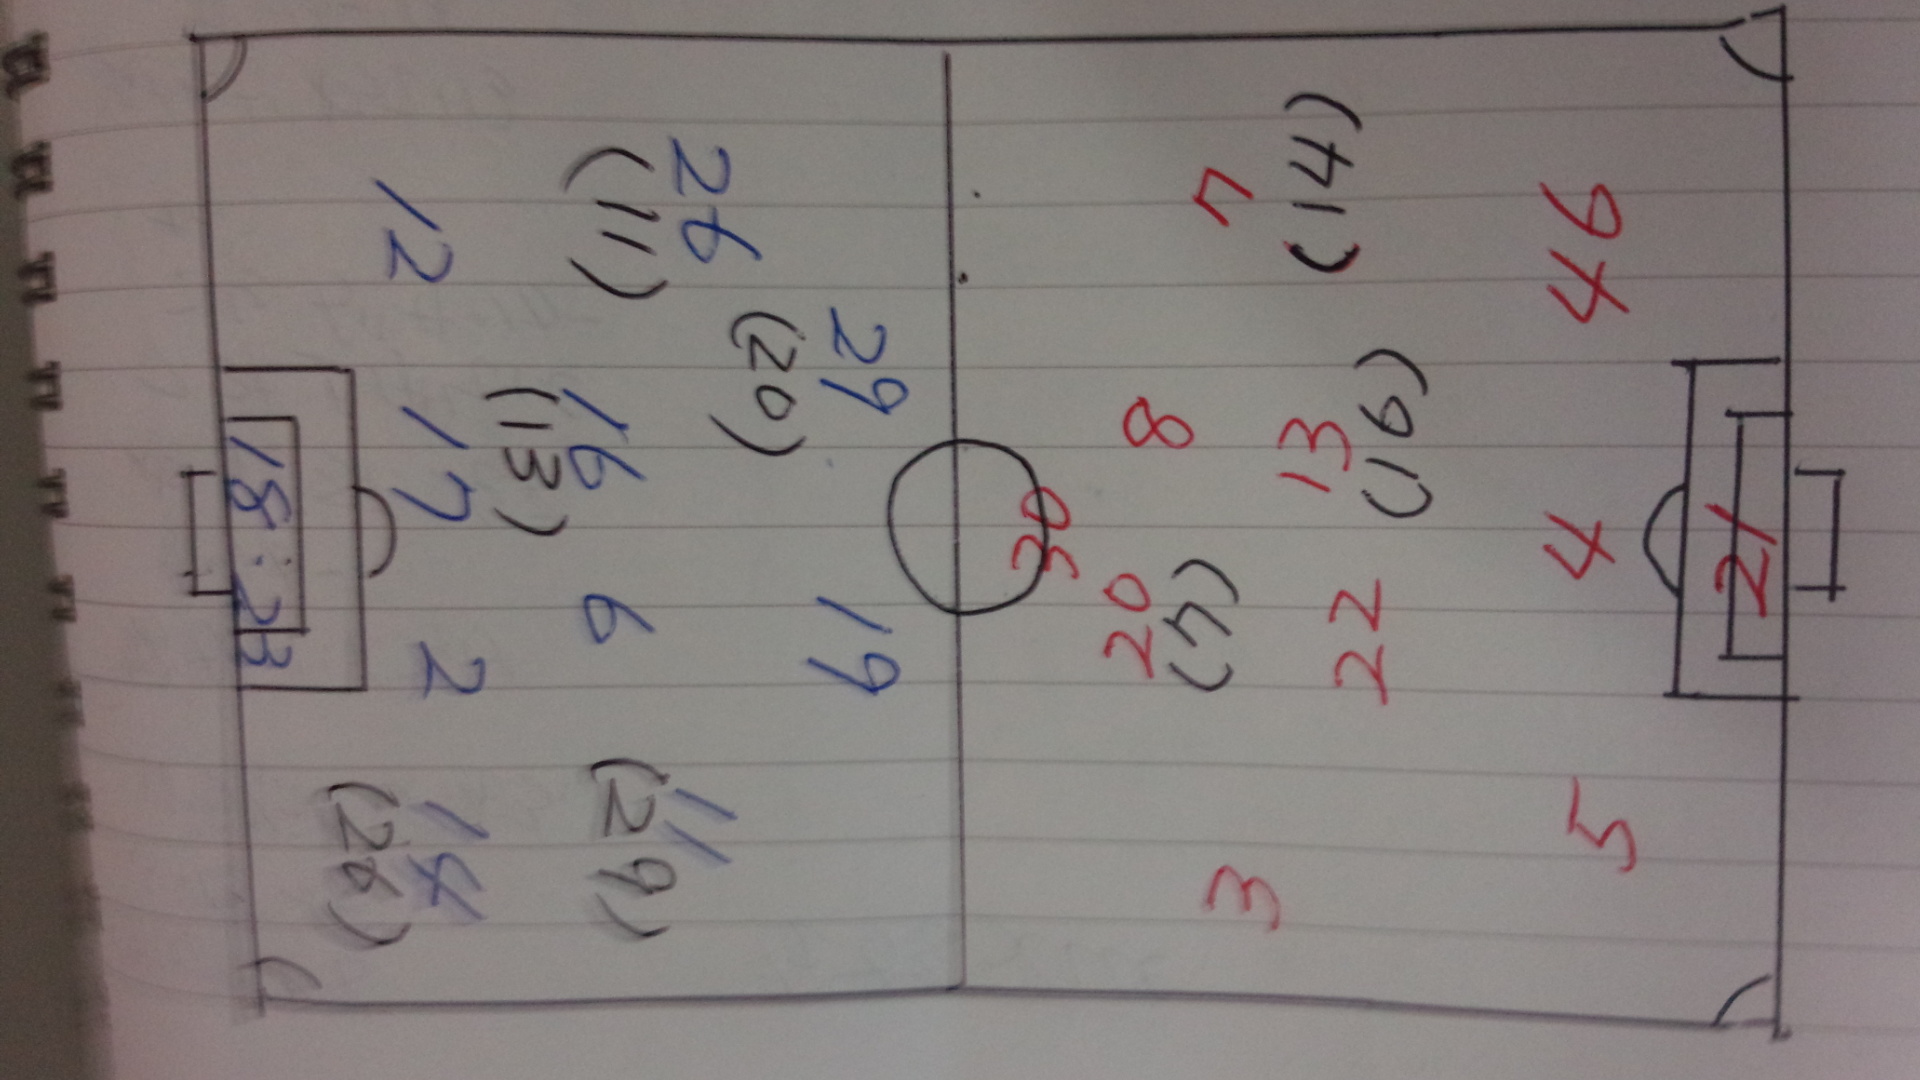 18:23
12
17
2
14
(26)
26
(11)
16
(13)
6
11
(29)
29
(20)
19
30
20
(7)
8
3
7
(14)
22
13
(16)
5
4
46
21